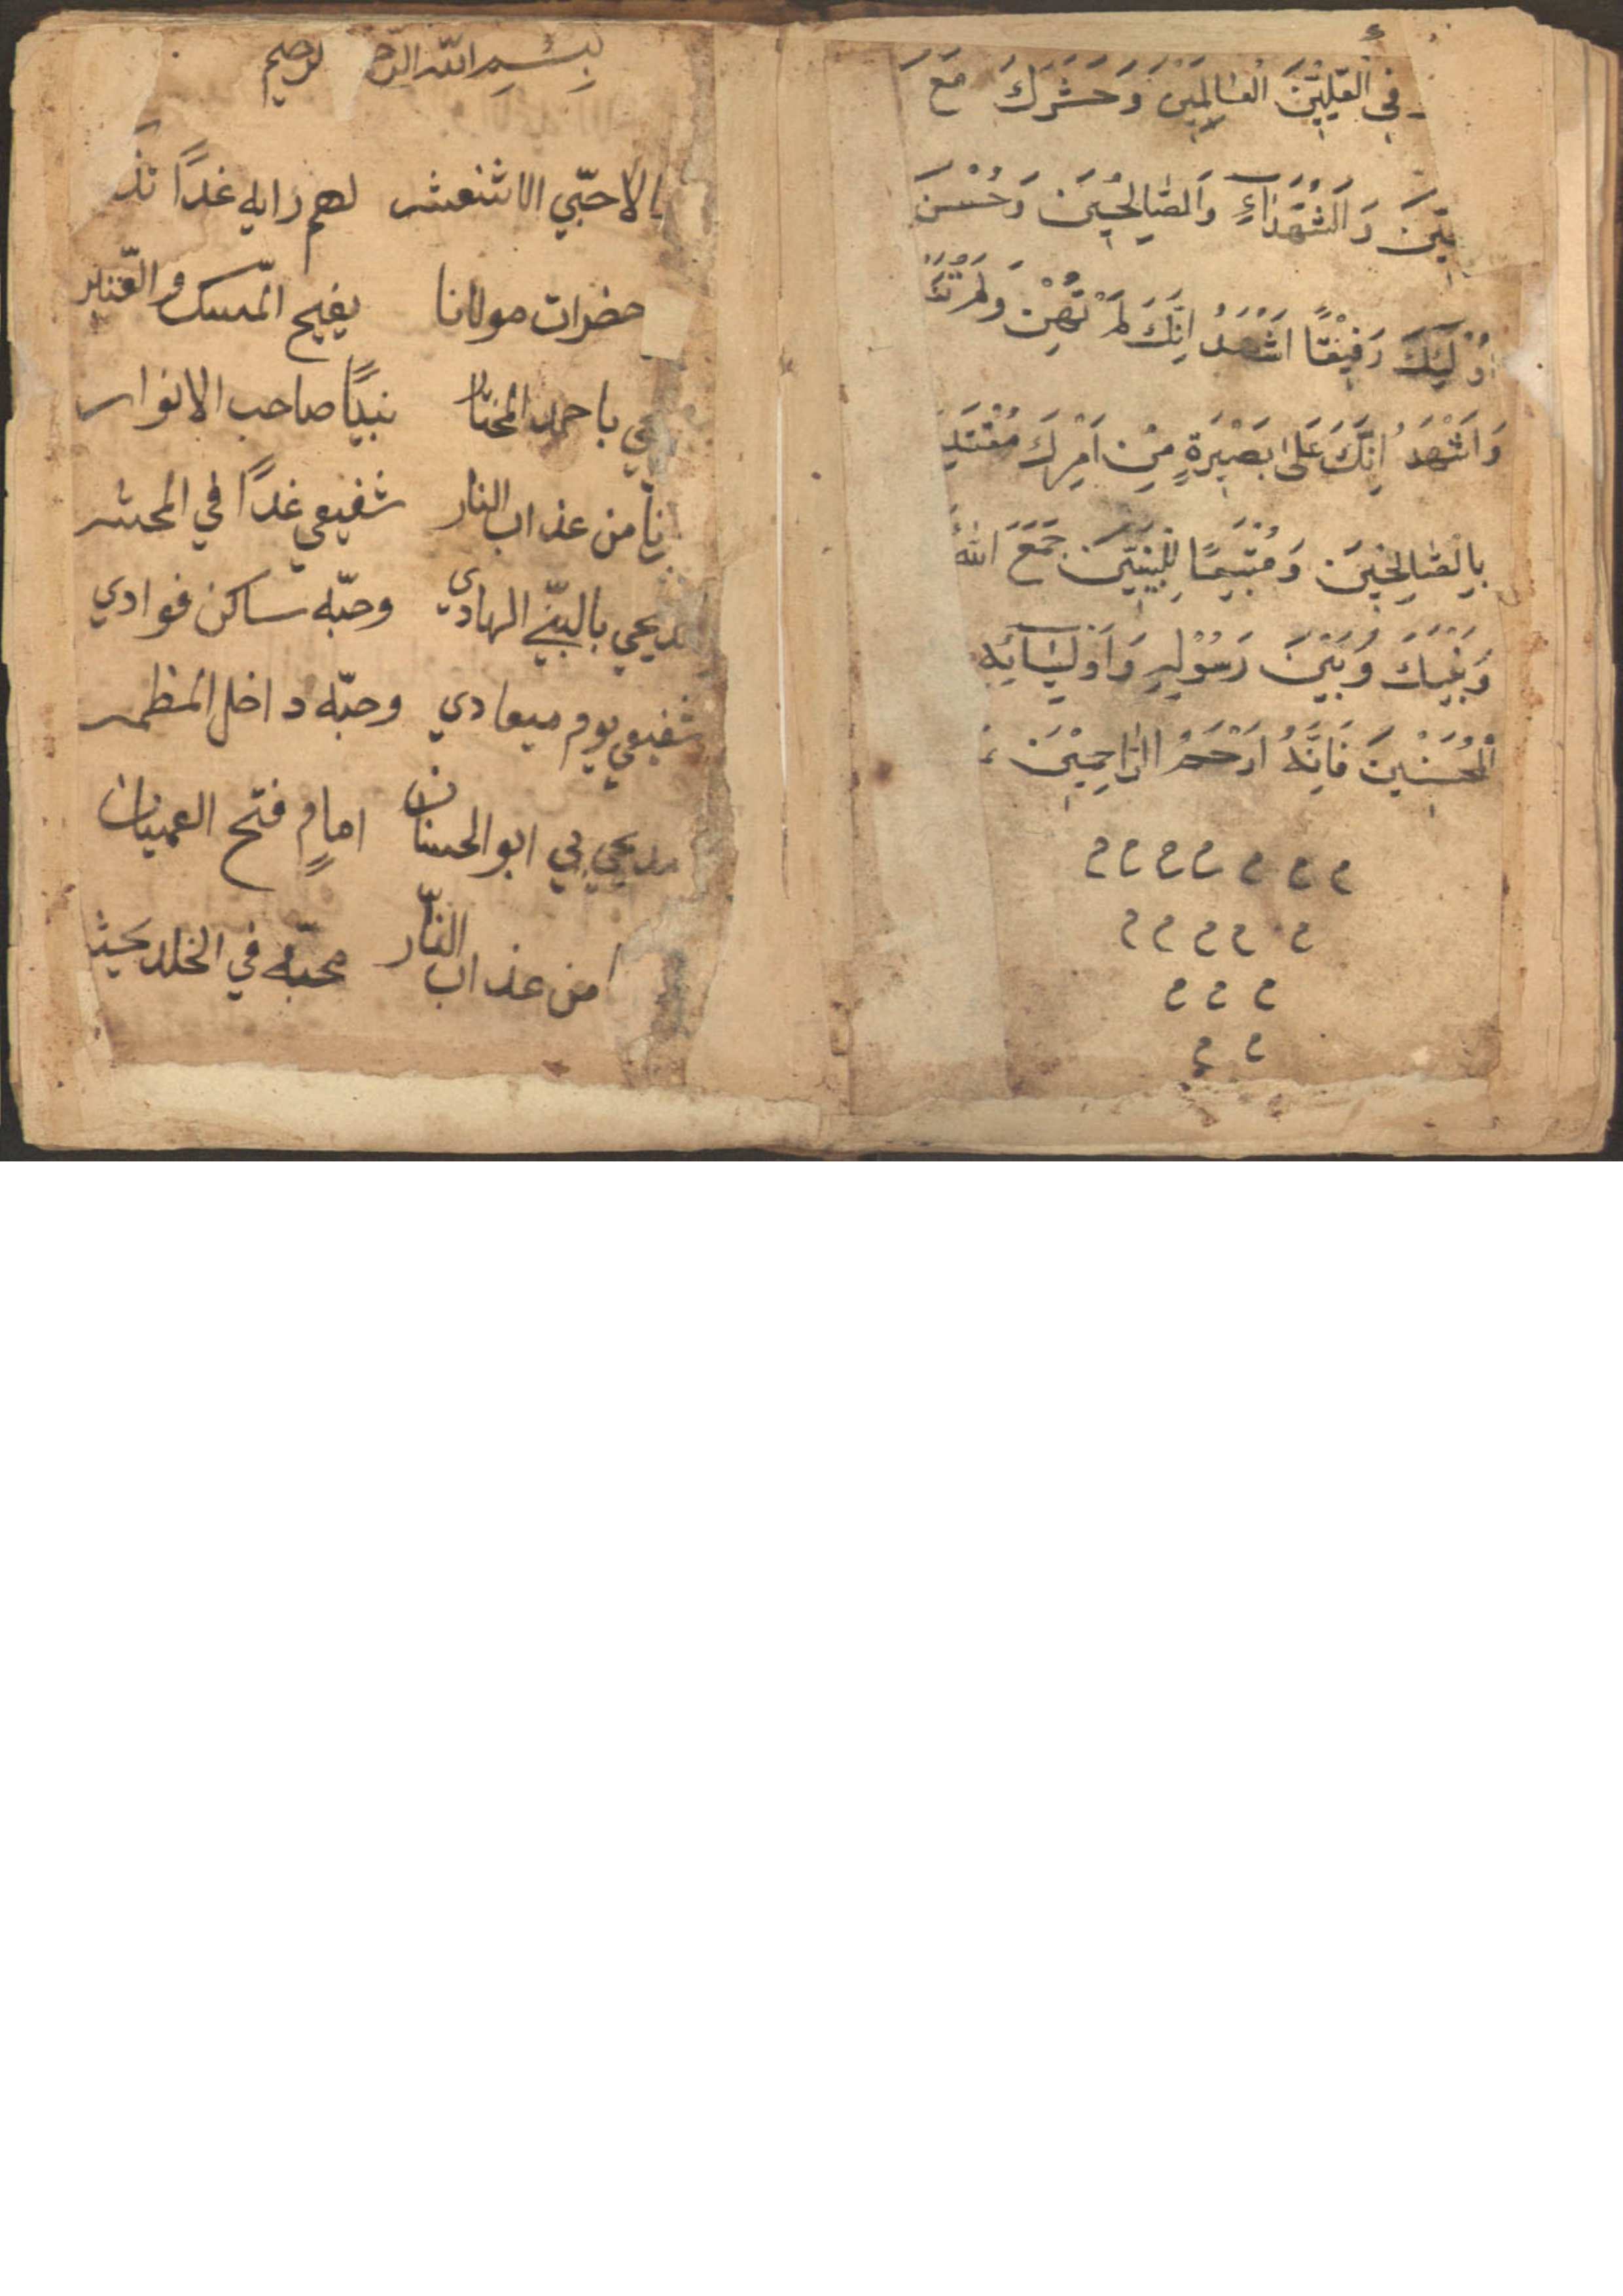 في العَلِيّينَ العَالَمِينَ وَحَشَرَكَ مَعَ
بِيّينَ وَالشُهَدَاءِ وَالصَّالِحِينَ وَحَسُنَ
اُولَئِكَ رَفِيقًا اَشْهَدُ اِنَّكَ لَمْ تَهِنْ وَلَمْ
وَاَشْهَدُ اِنَّكَ عَلَى بَصِيْرَةٍ مِنْ اَمْرِكَ
بِالصَّالِحِينَ وَمُتَّبِعًا لِلنَبِيّيَن جَمَعَ اللهُ
وَبَيْنَكَ وَبَيْنَ رَسُوْلِهِ وَاَوْلِيَائِهِ
المُحْسِنِينَ فَاِنَّهُ اَرْحَمُ الرَّاحِمِيْنَ
م م م م م م م
م م م م م
م م م
م م
بِسْمِ الله الرَّحـ لرحيم
الاحبّي الاثنعشر لهم رايه غدًا
حضرات مولانا يفيح المسك والعنبر
باحمد المختار نبيًا صاحب الانوار
من عذاب النار شفيعي غدًا في المحشر
مديحي بالنبّي الهادي وحبّه ساكن فوادي
شفيعي يوم ميعادي وحبّه داخل المظمر
مديحي بي ابوالحسنان امامٍ فتح العميان
من عذاب النّار محبّه في الخلد